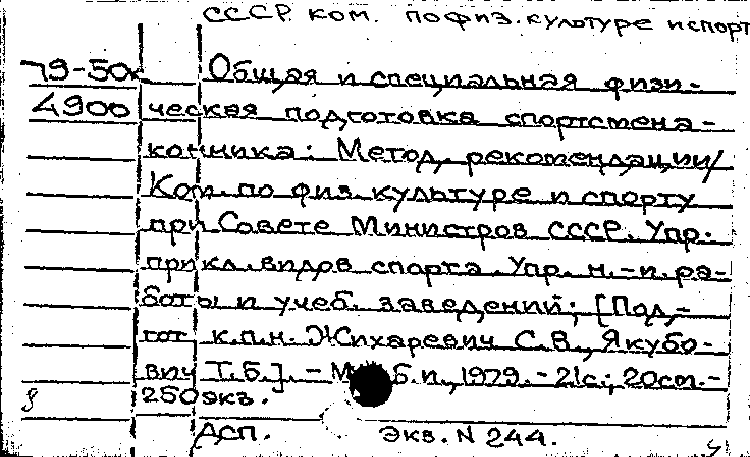 СССР. ком. по физ. культуре и спорт
79-50к Общая и специальная физи-
4900 ческая подготовка спортсмена-
конника: Метод. рекомендации/
Ком. по физ. культуре и спорту
при Совете Министров СССР. Упр.
прикл. видов спорта. Упр. н.-и. ра-
боты и учеб. заведений; [Под-
гот к.п.н. Жихаревич С.В., Якубо-
вич Т.Б.]. - М.: Б.и., 1979. - 21с.; 20см.-
250экз.
ДСП. экз. N 244.